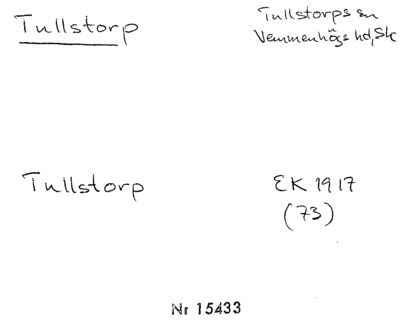 Tullstorp
Tullstorps sn
Vemmenhögs hd, Sk
Tullstorp
EK 1917
(73)
Nr 15433